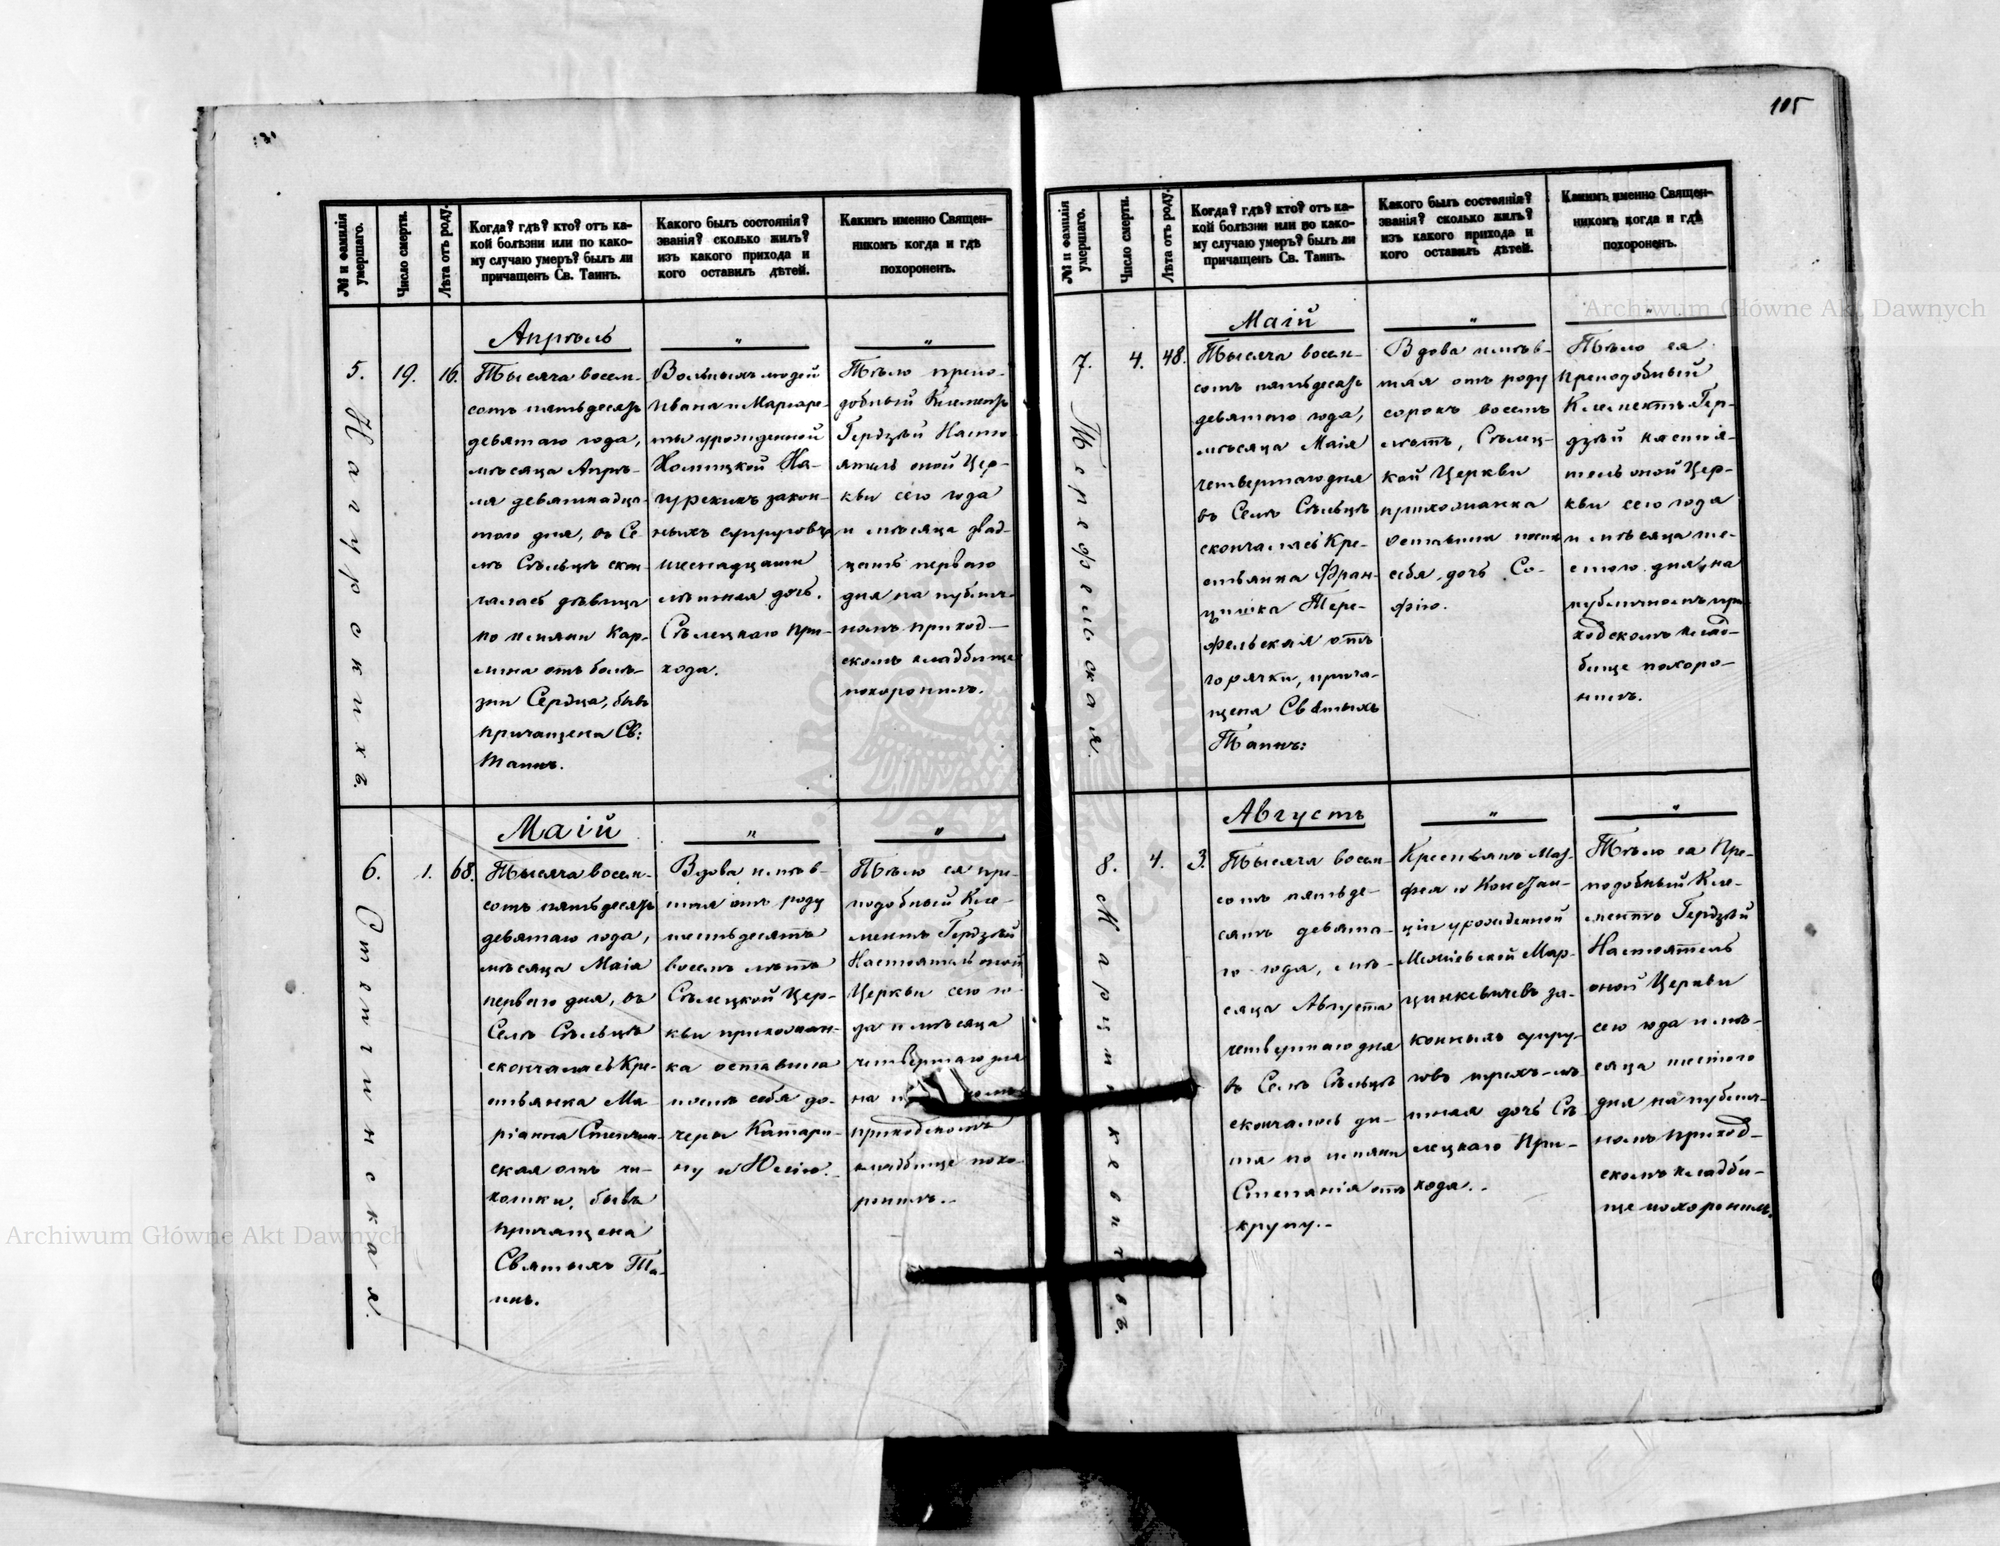 105
№ и фамилія умершаго.
Число смерти.
Лѣта отъ роду.
Когда? гдѣ? кто? отъ ка-
кой болѣзни или по како-
му случаю умеръ? былъ ли
причащенъ Св. Таинъ.
Какого былъ состоянія?
званія? сколько жилъ?
изъ какого прихода и
кого оставилъ дѣтей.
Какимъ именно Священ-
никомъ когда и гдѣ
похороненъ.
Апрѣль
"
"
5.
19.
16.
Тысяча восем-
сотъ пятьдесятъ
девятаго года,
мѣсяца Апрѣ-
ля девятнадца-
таго дня, въ Се-
лѣ Сѣльцѣ скон-
чалась дѣвица
по имяни Кар-
лина отъ болѣ-
зни Сердца, бывъ
причащена Св:
Таинъ.
Вольныхъ людей
Ивана и Маргаре-
ты урожденной
законн-
ныхъ супруговъ
шестнадцати
лѣтняя дочь.
Сѣлецкаго При-
хода.
Тѣло препо-
добный Климентъ
Гердзѣй Насто-
ятель оной Цер-
кви сего года
и мѣсяца двад-
цать перваго
дня на публич-
номъ приход-
скомъ кладбище
похоронилъ.
Маій
"
"
6.
1.
68.
Стенчинская.
Тысяча восем-
сотъ пятьдесятъ
девятаго года,
мѣсяца Маіа
перваго дня, въ
Селѣ Сѣльцѣ
скончалась Кре-
стьянка Ма-
ріанна Стенчин-
ская отъ чи-
хотки, бывъ
причащена
Святыхъ Та-
инъ.
Вдова имѣв-
шая отъ роду
шестьдесятъ
восемь лѣтъ
Сѣлецкой Цер-
кви прихожан-
ка оставила
послѣ себя до-
черы Катари-
ну и Юлію.
Тѣло ея пре-
подобный Кли-
ментъ Гердзѣй
Настоятель оной
Церкви сего го-
да и мѣсяца
четвертаго дня
на
приходскомъ
кладбище похо-
ронилъ.
№ и фамилія умершаго.
Число смерти.
Лѣта отъ роду.
Когда? гдѣ? кто? отъ ка-
кой болѣзни или по како-
му случаю умеръ? былъ ли
причащенъ Св. Таинъ.
Какого былъ состоянія?
званія? сколько жилъ?
изъ какого прихода и
кого оставилъ дѣтей.
Какимъ именно Священ-
никомъ когда и гдѣ
похороненъ.
Маій
"
"
7.
4.
48.
Терефельская.
Тысяча восем-
сотъ пятьдесятъ
девятаго года,
мѣсяца Маія
четвертаго дня
въ Селѣ Сѣльцѣ
скончалась Кре-
стьянка Фран-
цишка Тере-
фельская отъ
горячки, прича-
щена Святыхъ
Таинъ:
Вдова имѣв-
шая отъ роду
сорокъ восемь
лѣтъ, Сѣлец-
кой Церкви
прихожанка
оставила послѣ
себя дочь Со-
фію.
Тѣло ея
преподобный
Климентъ Гер-
дзѣй настоя-
тель оной Цер-
кви сего года
и мѣсяца ше-
стого дня, на
публичномъ при-
ходскомъ клад-
бище похоро-
нилъ.
Августъ
"
"
8.
4.
3.
Марцинкевичевъ.
Тысяча восем-
сотъ пятьде-
сятъ девята-
го года, мѣ-
сяца Августа
четвертаго дня
въ Селѣ Сѣльцѣ
скончалось ди-
тя по имяни
Степанія отъ
крупу.-
Крестьянъ
и Констан-
ціи урожденной
Мар-
цинкевичевъ за-
конныхъ супру-
говъ трехъ-лѣ-
тняя дочь Сѣ-
лецкаго При-
хода.-
Тѣло ея Пре-
подобный Кли-
ментъ Гердзѣй
Настоятель
оной Церкви
сего года и мѣ-
сяца шестого
дня на публич-
номъ приход-
скомъ кладби-
ще похоронилъ.
Archiwum Główne Akt Dawnych
Archiwum Główne Akt Dawnych